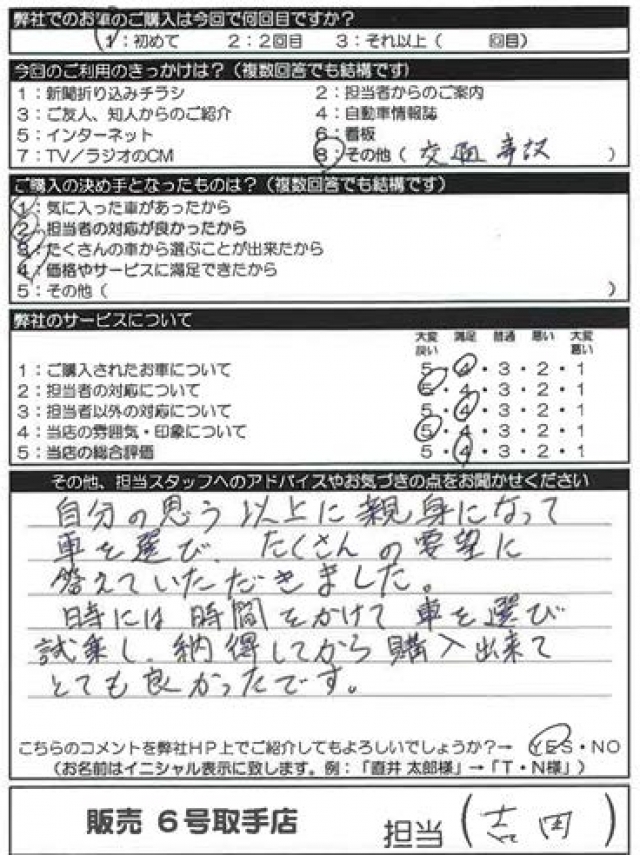 弊社でのお車のご購入は今回で何回目ですか？
1：初めて 2：2回目 3：それ以上（ 回目）
今回のご利用のきっかけは？（複数回答でも結構です）
1：新聞折り込みチラシ 2：担当者からのご案内
3：ご友人、知人からのご紹介 4：自動車情報誌
5：インターネット 6：看板
7：TV／ラジオのCM 8：その他（ 交通事故 ）
ご購入の決め手となったものは？（複数回答でも結構です）
1：気に入った車があったから
2：担当者の対応が良かったから
3：たくさんの車から選ぶことが出来たから
4：価格やサービスに満足できたから
5：その他（ ）
弊社のサービスについて
大変良い 満足 普通 悪い 大変悪い
1：ご購入されたお車について 5・4・3・2・1
2：担当者の対応について 5・4・3・2・1
3：担当者以外の対応について 5・4・3・2・1
4：当店の雰囲気・印象について 5・4・3・2・1
5：当店の総合評価 5・4・3・2・1
その他、担当スタッフへのアドバイスやお気づきの点をお聞かせください
自分の思う以上に親身になって
車を選び、たくさんの要望に
答えていただきました。
時には時間をかけて車を選び
試乗し、納得してから購入出来て
とても良かったです。
こちらのコメントを弊社HP上でご紹介してもよろしいでしょうか？→ YES・NO
（お名前はイニシャル表示に致します。例：「直井 太郎様」→「T・N様」）
販売 6号取手店 担当（吉田）